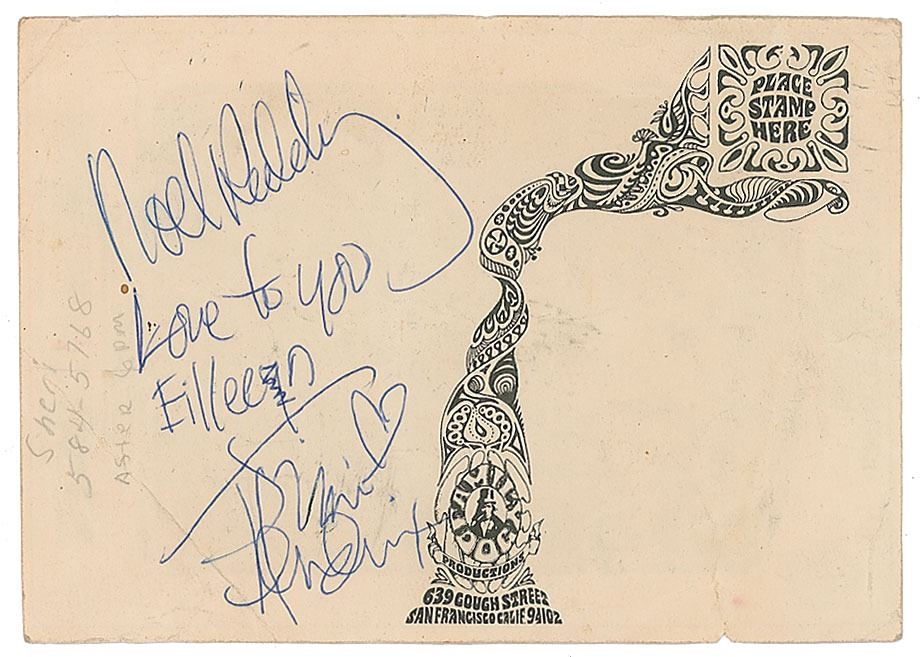 Noel Redding
Love to you
Eilleen
Jimi
Hendrix
Sheri
584-5768
AFTER 6PM
PLACE
STAMP
HERE
FAMILY
DOG
PRODUCTIONS
639 GOUGH STREET
SAN FRANCISCO CALIF. 94102